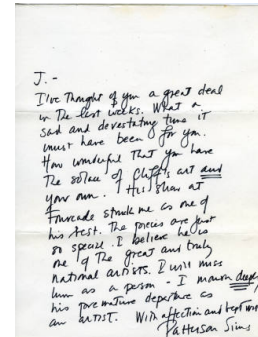 J. -
I've Thought of you a great deal
in The last weeks. What a
sad and devastating time it
must have been for you.
How wonderful That you have
The solace of Cliff's art and
your own. His show at
Fourcade struck me as one of
his best. The pieces are just
so special. I believe he is
one of The great and truly
national artists. I will miss
him as a person - I mourn deeply
his premature departure as
an artist. With affection and best wishes
Patterson Sims